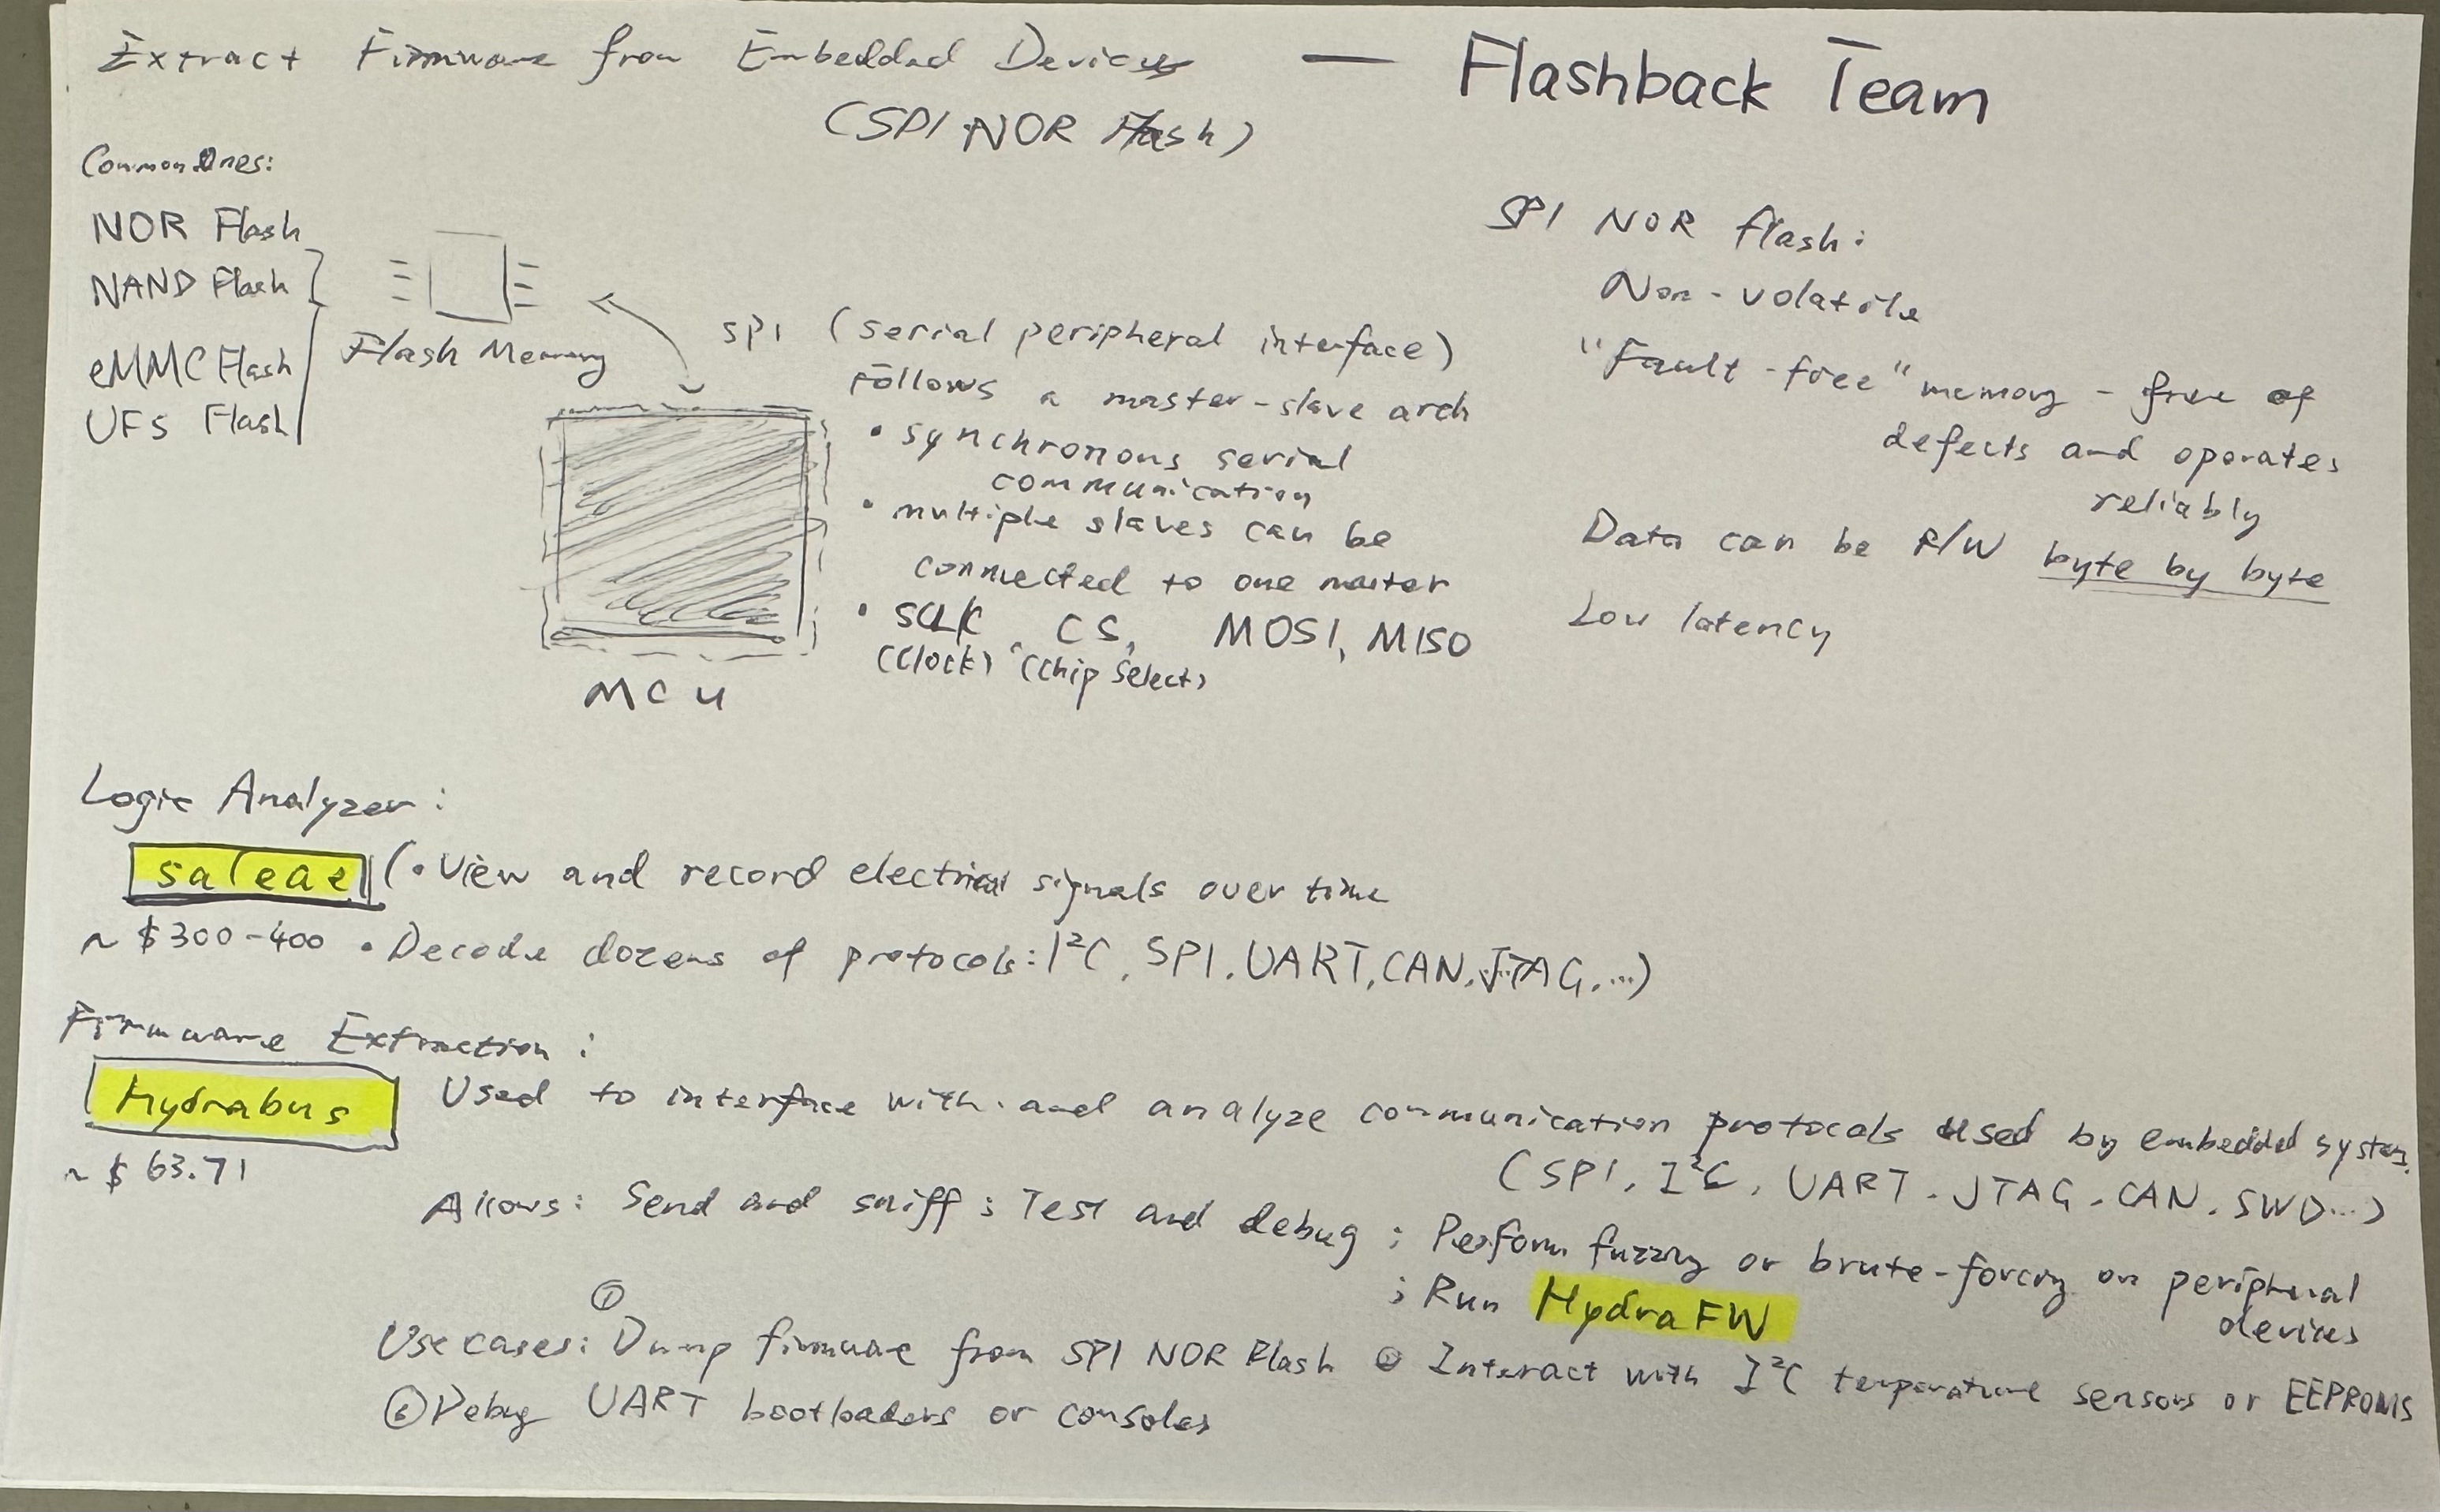 Extract Firmware from Embedded Devices — Flashback Team
(SPI NOR Flash)
Common Ones:
NOR Flash
NAND Flash
eMMC Flash
UFS Flash
Flash Memory
MCU
SPI (serial peripheral interface)
Follows a master-slave arch
• synchronous serial
communication
• multiple slaves can be
connected to one master
• SCLK, CS, MOSI, MISO
(Clock) (Chip Select)
SPI NOR flash:
Non-volatile
"Fault-free" memory - free of
defects and operates
reliably
Data can be R/W byte by byte
Low latency
Logic Analyzer:
saleae (• View and record electrical signals over time
~ $300-400 • Decode dozens of protocols: I²C, SPI, UART, CAN, JTAG, ...)
Firmware Extraction:
Hydrabus Used to interface with and analyze communication protocols used by embedded systems.
~ $63.71
(SPI, I²C, UART, JTAG, CAN, SWD...)
Allows: Send and sniff; Test and debug; Perform fuzzing or brute-forcing on peripheral
devices
; Run HydraFW
Use cases: ① Dump firmware from SPI NOR Flash ② Interact with I²C temperature sensors or EEPROMS
Debug UART bootloaders or consoles